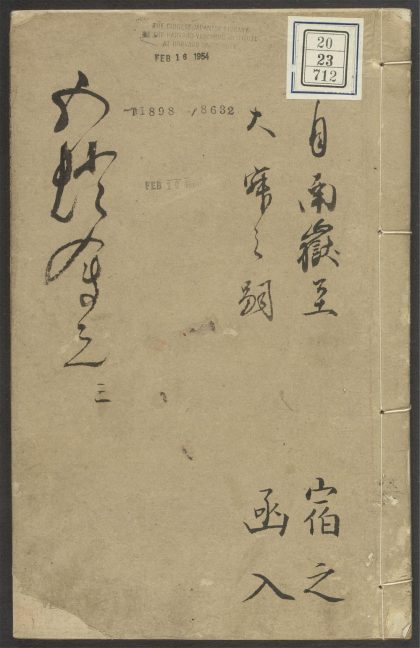 THE CHINESE-JAPANESE LIBRARY
OF THE HARVARD-YENCHING INSTITUTE
AT HARVARD
FEB 16 1954
20
23
712
T1898 /8632
FEB
自南嶽至
大寂之嗣
宿之
函入
五燈會元
三